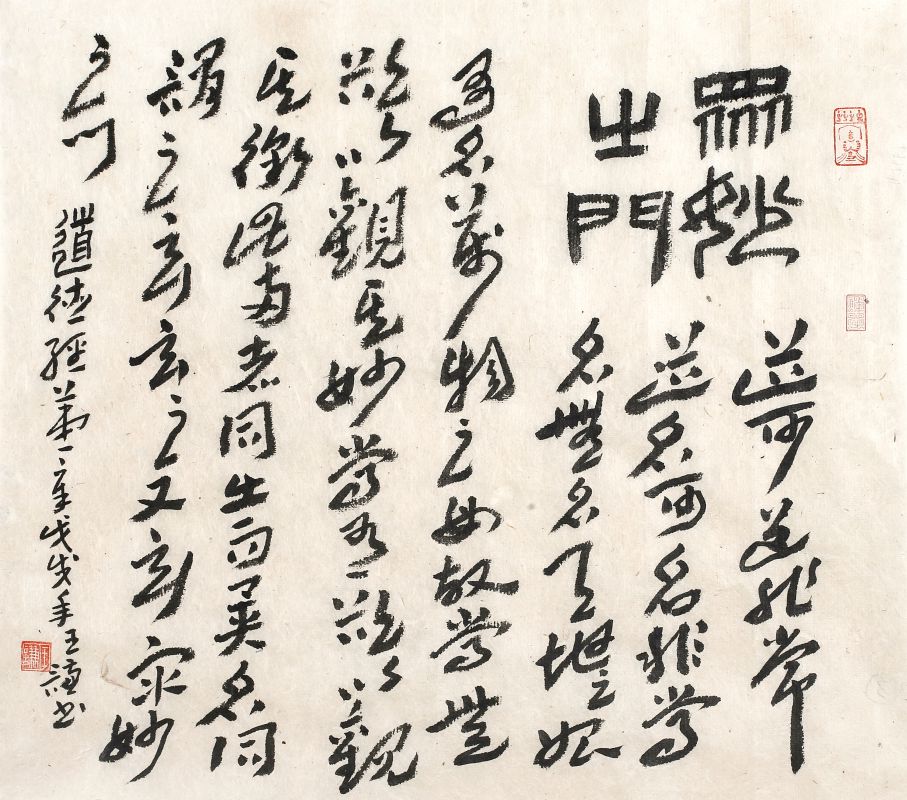 眾妙
之門
道可道非常
道名可名非常
名無名天地之始
有名萬物之母故常無
欲以觀其妙常有欲以觀
其徼此兩者同出而異名同
謂之玄玄之又玄眾妙
之門
道德經第一章戊戌年王謙書